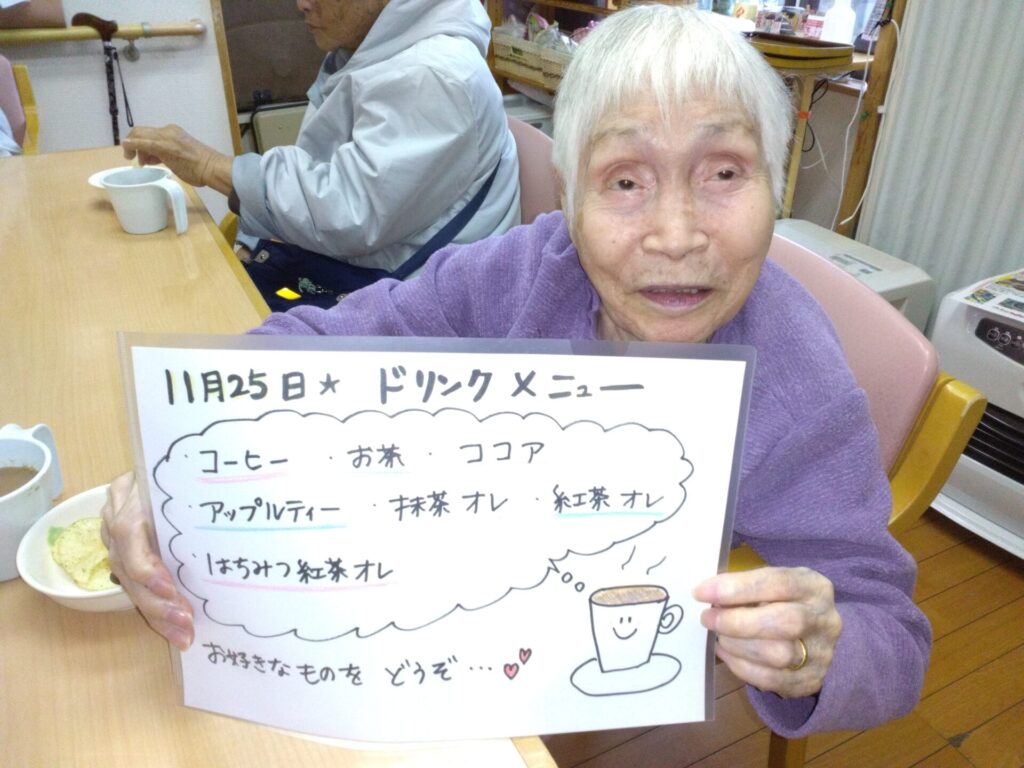 11月25日☆ ドリンクメニュー
・コーヒー ・お茶・ ココア
・アップルティー ・抹茶オレ ・紅茶オレ
・はちみつ紅茶オレ
お好きなものを どうぞ…